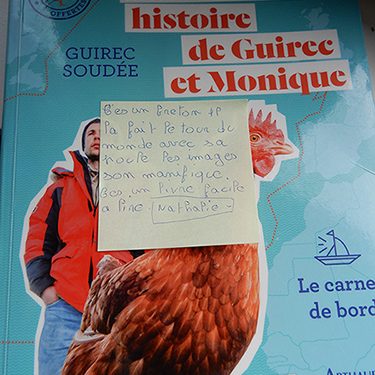 OFFERTES
histoire
de Guirec
et Monique
GUIREC
SOUDÉE
C'es un breton
la fait le tour du
monde avec sa
poule les images
son manifique.
Ces un livre facile
a lire. Nathalie
Le carne
de bord
ARTHAU